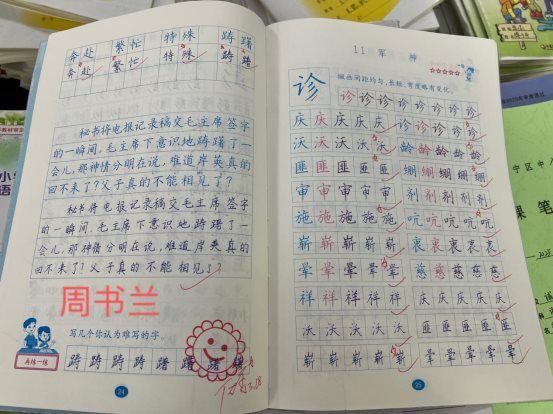 奔赴 繁忙 特殊 踌躇
奔赴 繁忙 特殊 踌躇
秘书将电报记录稿交毛主席签字
的一瞬间，毛主席下意识地踌躇了一
会儿，那神情分明在说，难道岸英真的
回不来了？父子真的不能相见了？
秘书将电报记录稿交毛主席签字
的一瞬间，毛主席下意识地踌躇了一
会儿，那神情分明在说，难道岸英真的
回不来了？父子真的不能相见了？
周书兰
写几个你认为难写的字。
再练一练
踌踌踌踌躇躇躇躇
24
11 军 神
诊
撇画间距均匀，长短、弯度略有变化。
诊诊诊诊诊诊诊
庆庆庆庆庆 诊诊诊诊诊
沃沃沃沃沃 龄龄龄龄龄
匪匪匪匪匪 绷绷绷绷绷
审审审审审 剂剂剂剂剂
施施施施施 吭吭吭吭吭
崭崭崭崭崭 衷衷衷衷衷
晕晕晕晕晕 慈慈慈慈慈
祥祥祥祥祥 庆庆庆庆庆
沃沃沃沃沃 匪匪匪匪匪
崭崭崭崭崭 晕晕晕晕晕
25